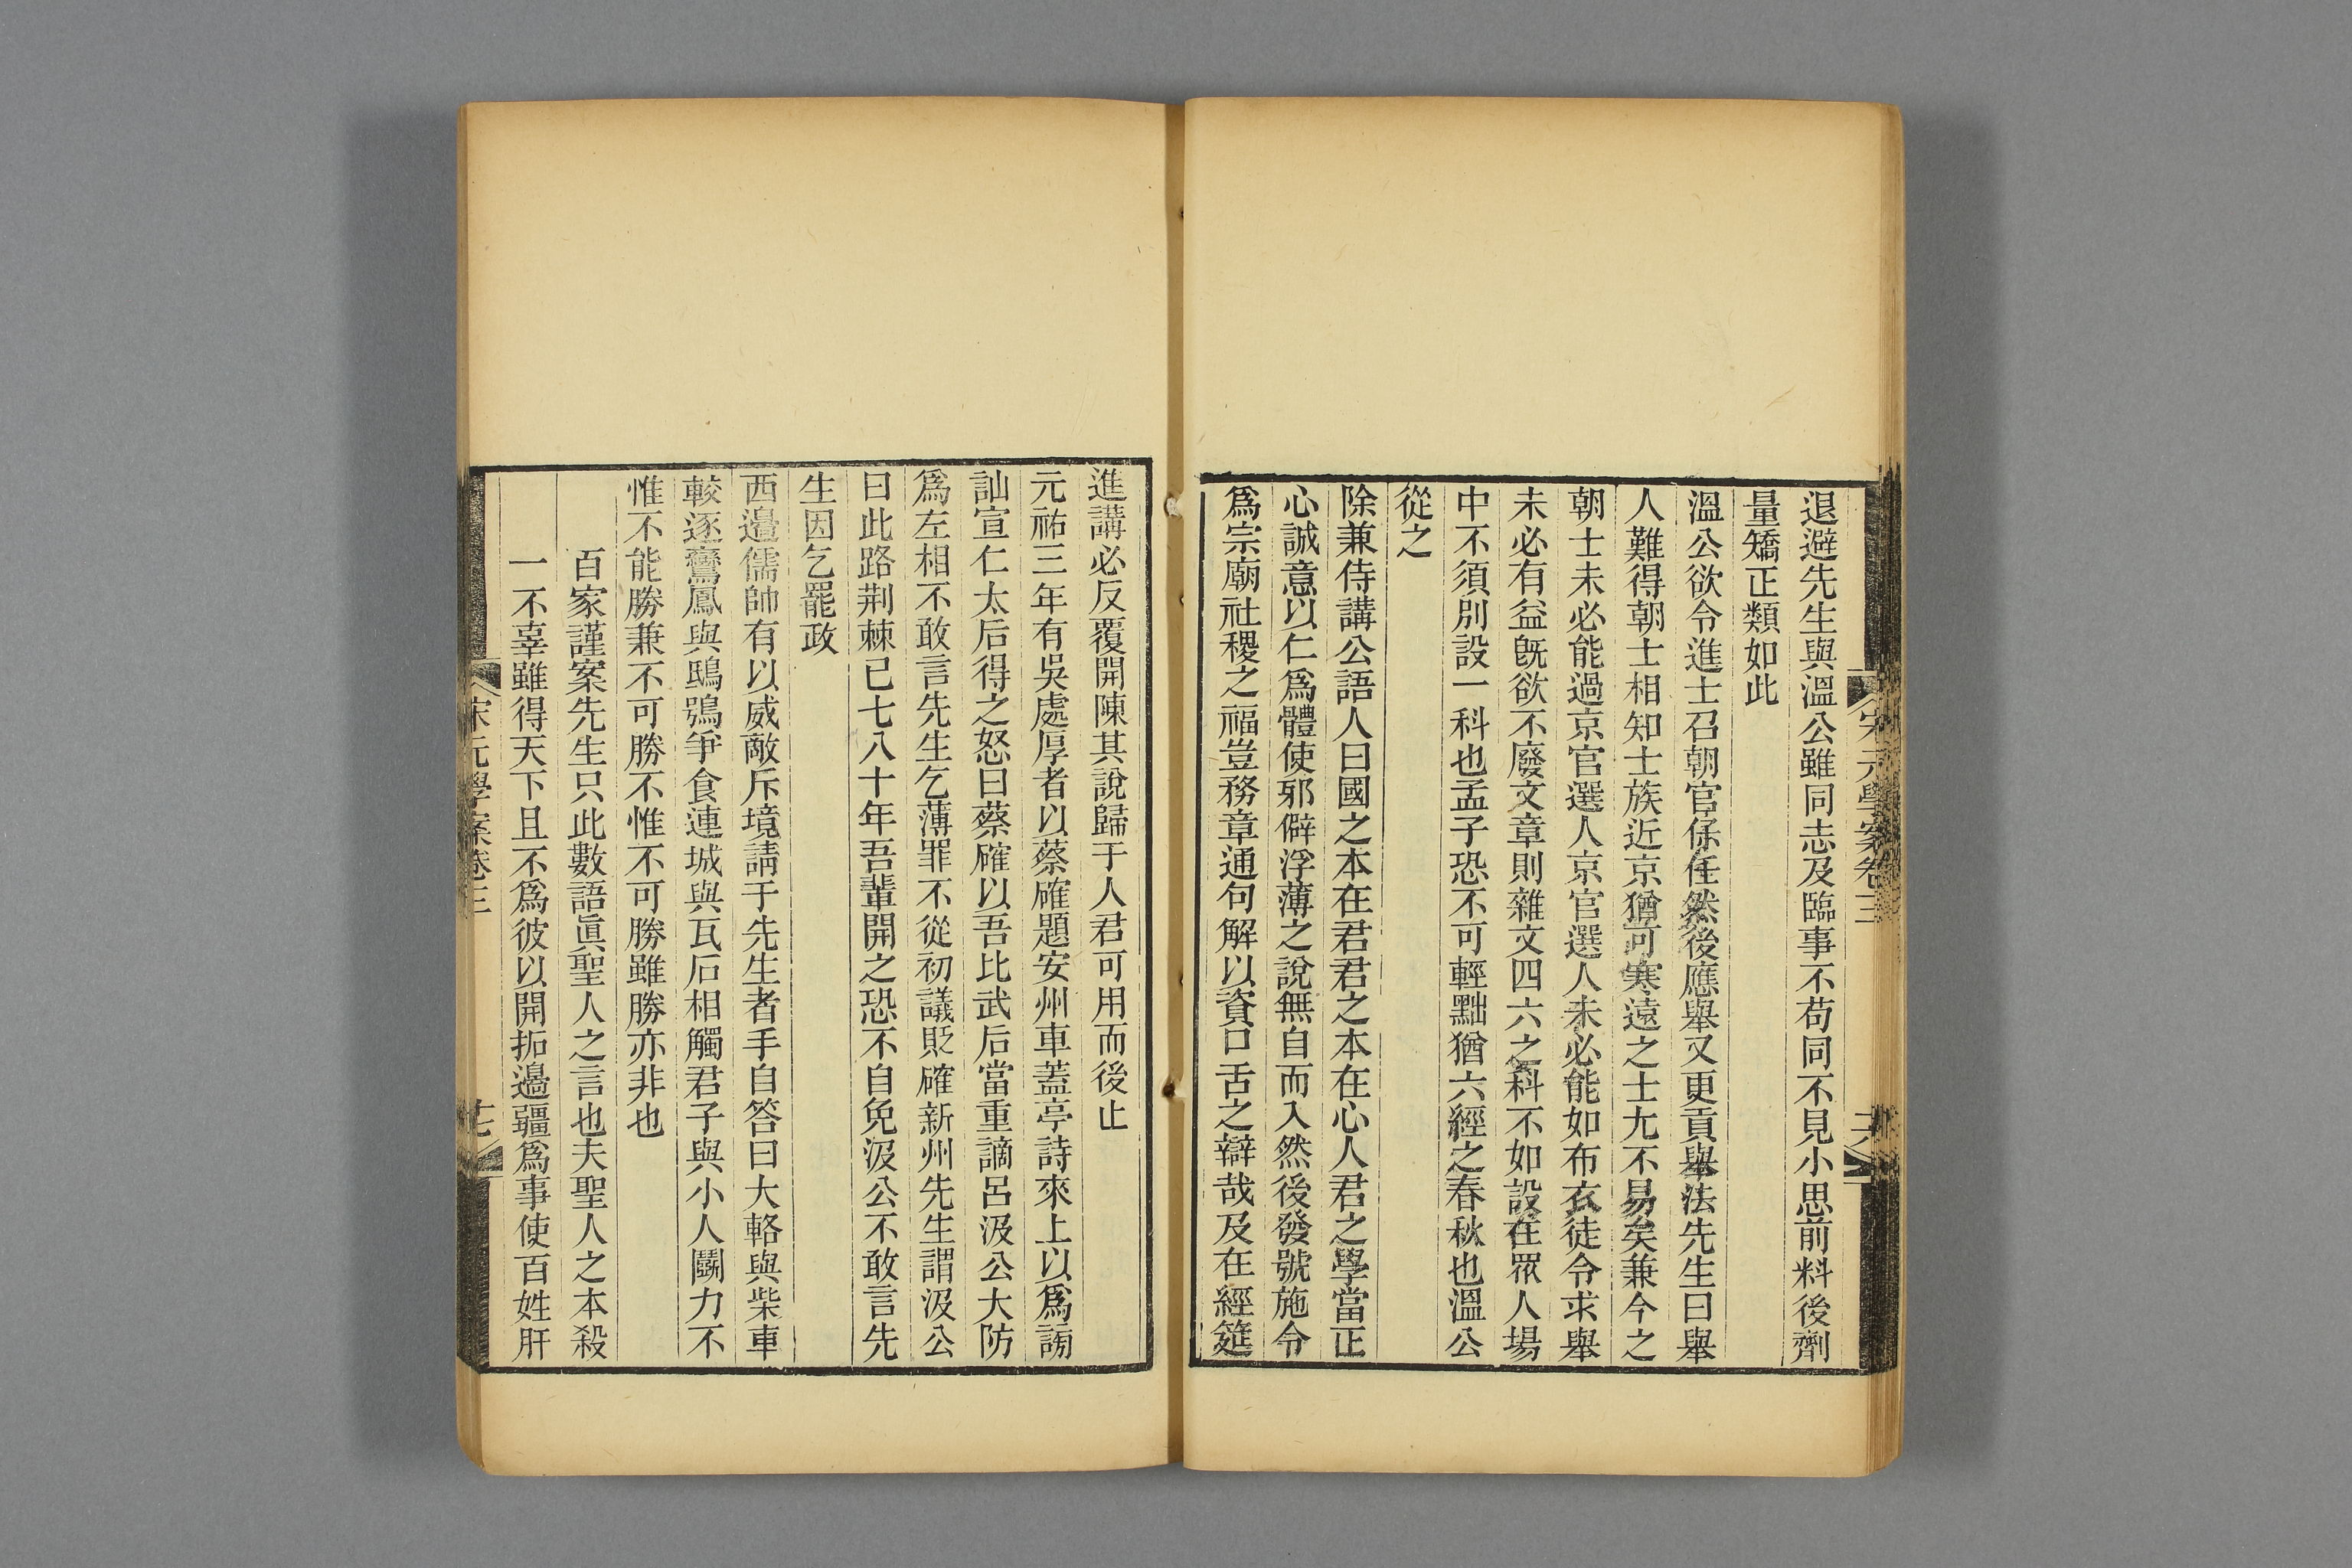 宋元學案卷三
十六
退避先生與溫公雖同志及臨事不苟同不見小思前料後劑
量矯正類如此
溫公欲令進士召朝官保任然後應舉又更貢舉法先生曰舉
人難得朝士相知士族近京猶可寒遠之士尢不易矣兼今之
朝士未必能過京官選人京官選人未必能如布衣徒令求舉
未必有益旣欲不廢文章則雜文四六之科不如設在眾人場
中不須別設一科也孟子恐不可輕黜猶六經之春秋也溫公
從之
除兼侍講公語人曰國之本在君君之本在心人君之學當正
心誠意以仁爲體使邪僻浮薄之說無自而入然後發號施令
爲宗廟社稷之福豈務章通句解以資口舌之辯哉及在經筵
進講必反覆開陳其說歸于人君可用而後止
元祐三年有吳處厚者以蔡確題安州車蓋亭詩來上以爲謗
訕宣仁太后得之怒曰蔡確以吾比武后當重謫呂汲公大防
爲左相不敢言先生乞薄罪不從初議貶確新州先生謂汲公
曰此路荆棘已七八十年吾輩開之恐不自免汲公不敢言先
生因乞罷政
西邊儒帥有以威敵斥境請于先生者手自答曰大輅與柴車
較逐鸞鳳與鴟鴞爭食連城與瓦石相觸君子與小人鬭力不
惟不能勝兼不可勝不惟不可勝雖勝亦非也
百家謹案先生只此數語眞聖人之言也夫聖人之本殺
一不辜雖得天下且不爲彼以開拓邊疆爲事使百姓肝
宋元學案卷三
十七